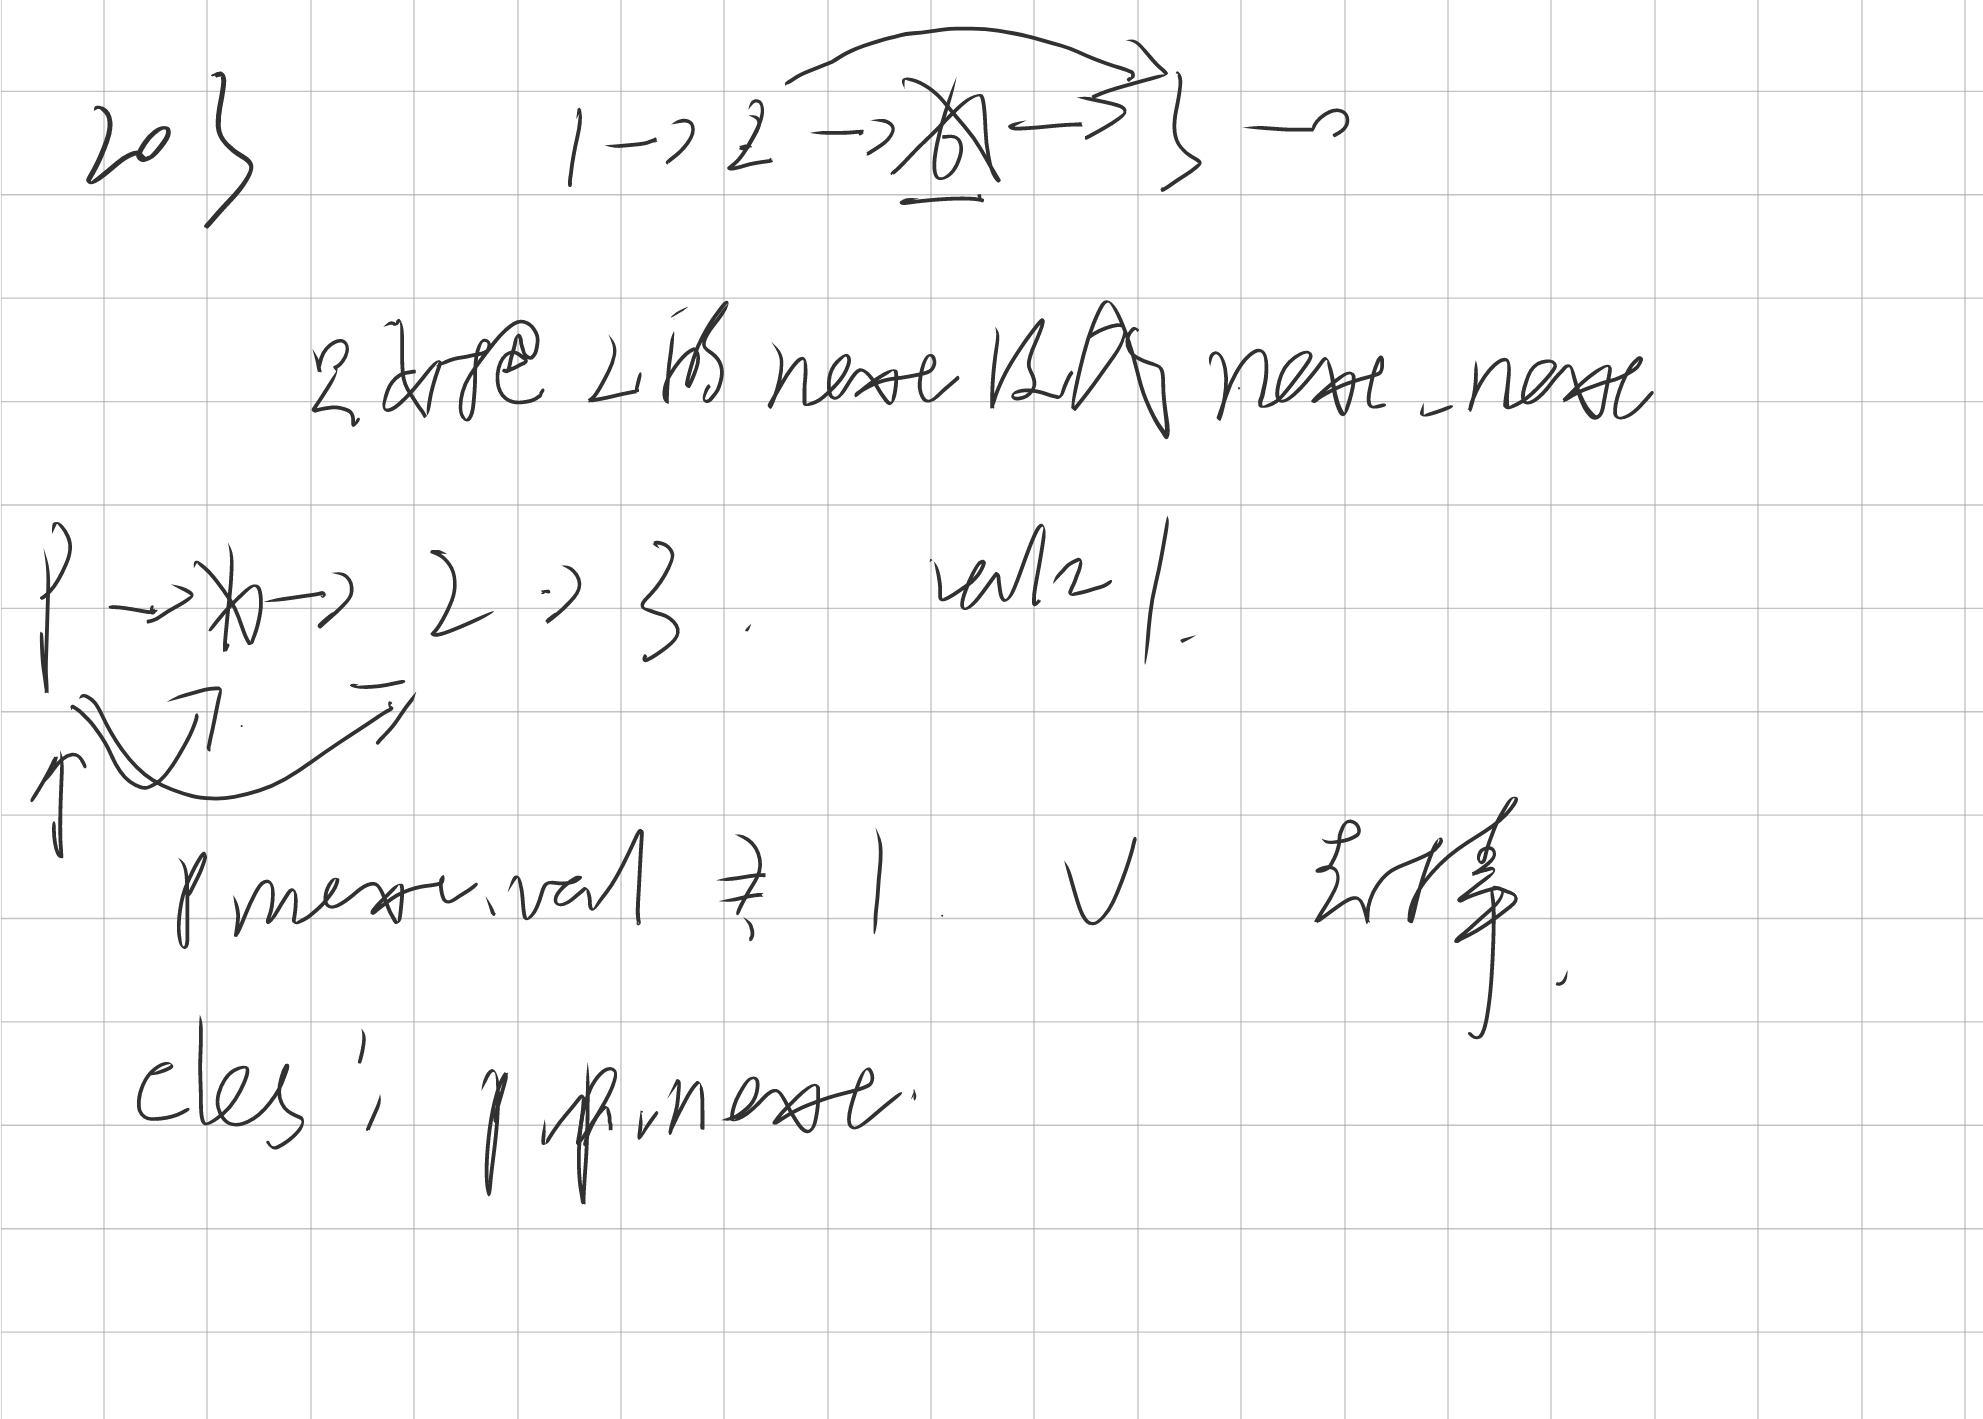 203 1 → 2 → 6 → 3 →
只要把 2 的 next 改成 next.next
p → 1 → 2 → 3. val = 1.
p.next.val = 1 ✓ 去掉.
else: p = p.next.